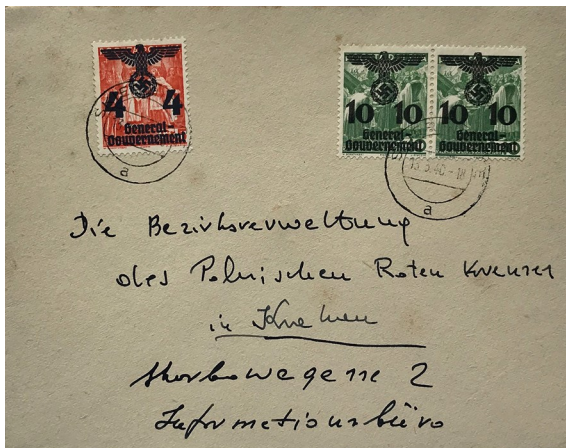 4 4
General-
Gouvernement
10 10
General-
Gouvernement
10 10
General-
Gouvernement
a
a
Die Bezirksverweltung
des Polnischen Roten Kreuzes
in Krakau
2
Informationsbüro